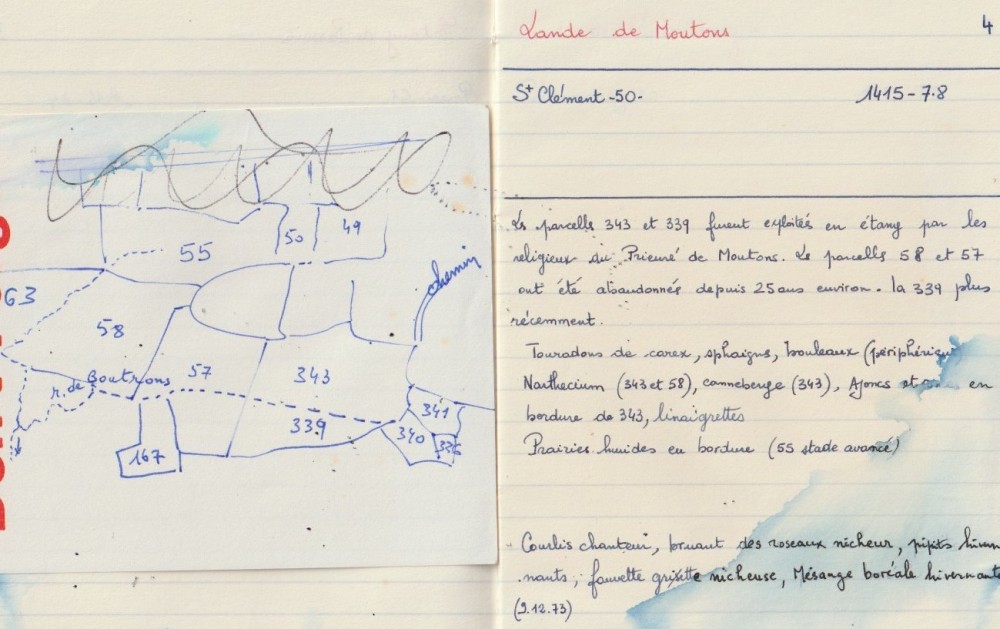 55
50
49
chemin
63
58
r. de Boutrons
57
343
339
341
340
167
Lande de Moutons
4
St Clément -50-
1415 - 7.8
Les parcelles 343 et 339 furent exploités en étang par les
religieux du Prieuré de Moutons. Les parcelles 58 et 57
ont été abandonnés depuis 25 ans environ. la 339 plus
récemment.
Touradons de carex, sphaignes, bouleaux (périphérique
Narthecium (343 et 58), canneberge (343), Ajoncs et en
bordure de 343, linaigrettes
Prairies humides en bordure (55 stade avancé)
Courlis chanteur, bruant des roseaux nicheur, pipits hiver
nants, fauvette grisette nicheuse, Mésange boréale hivernante
(2.12.73)